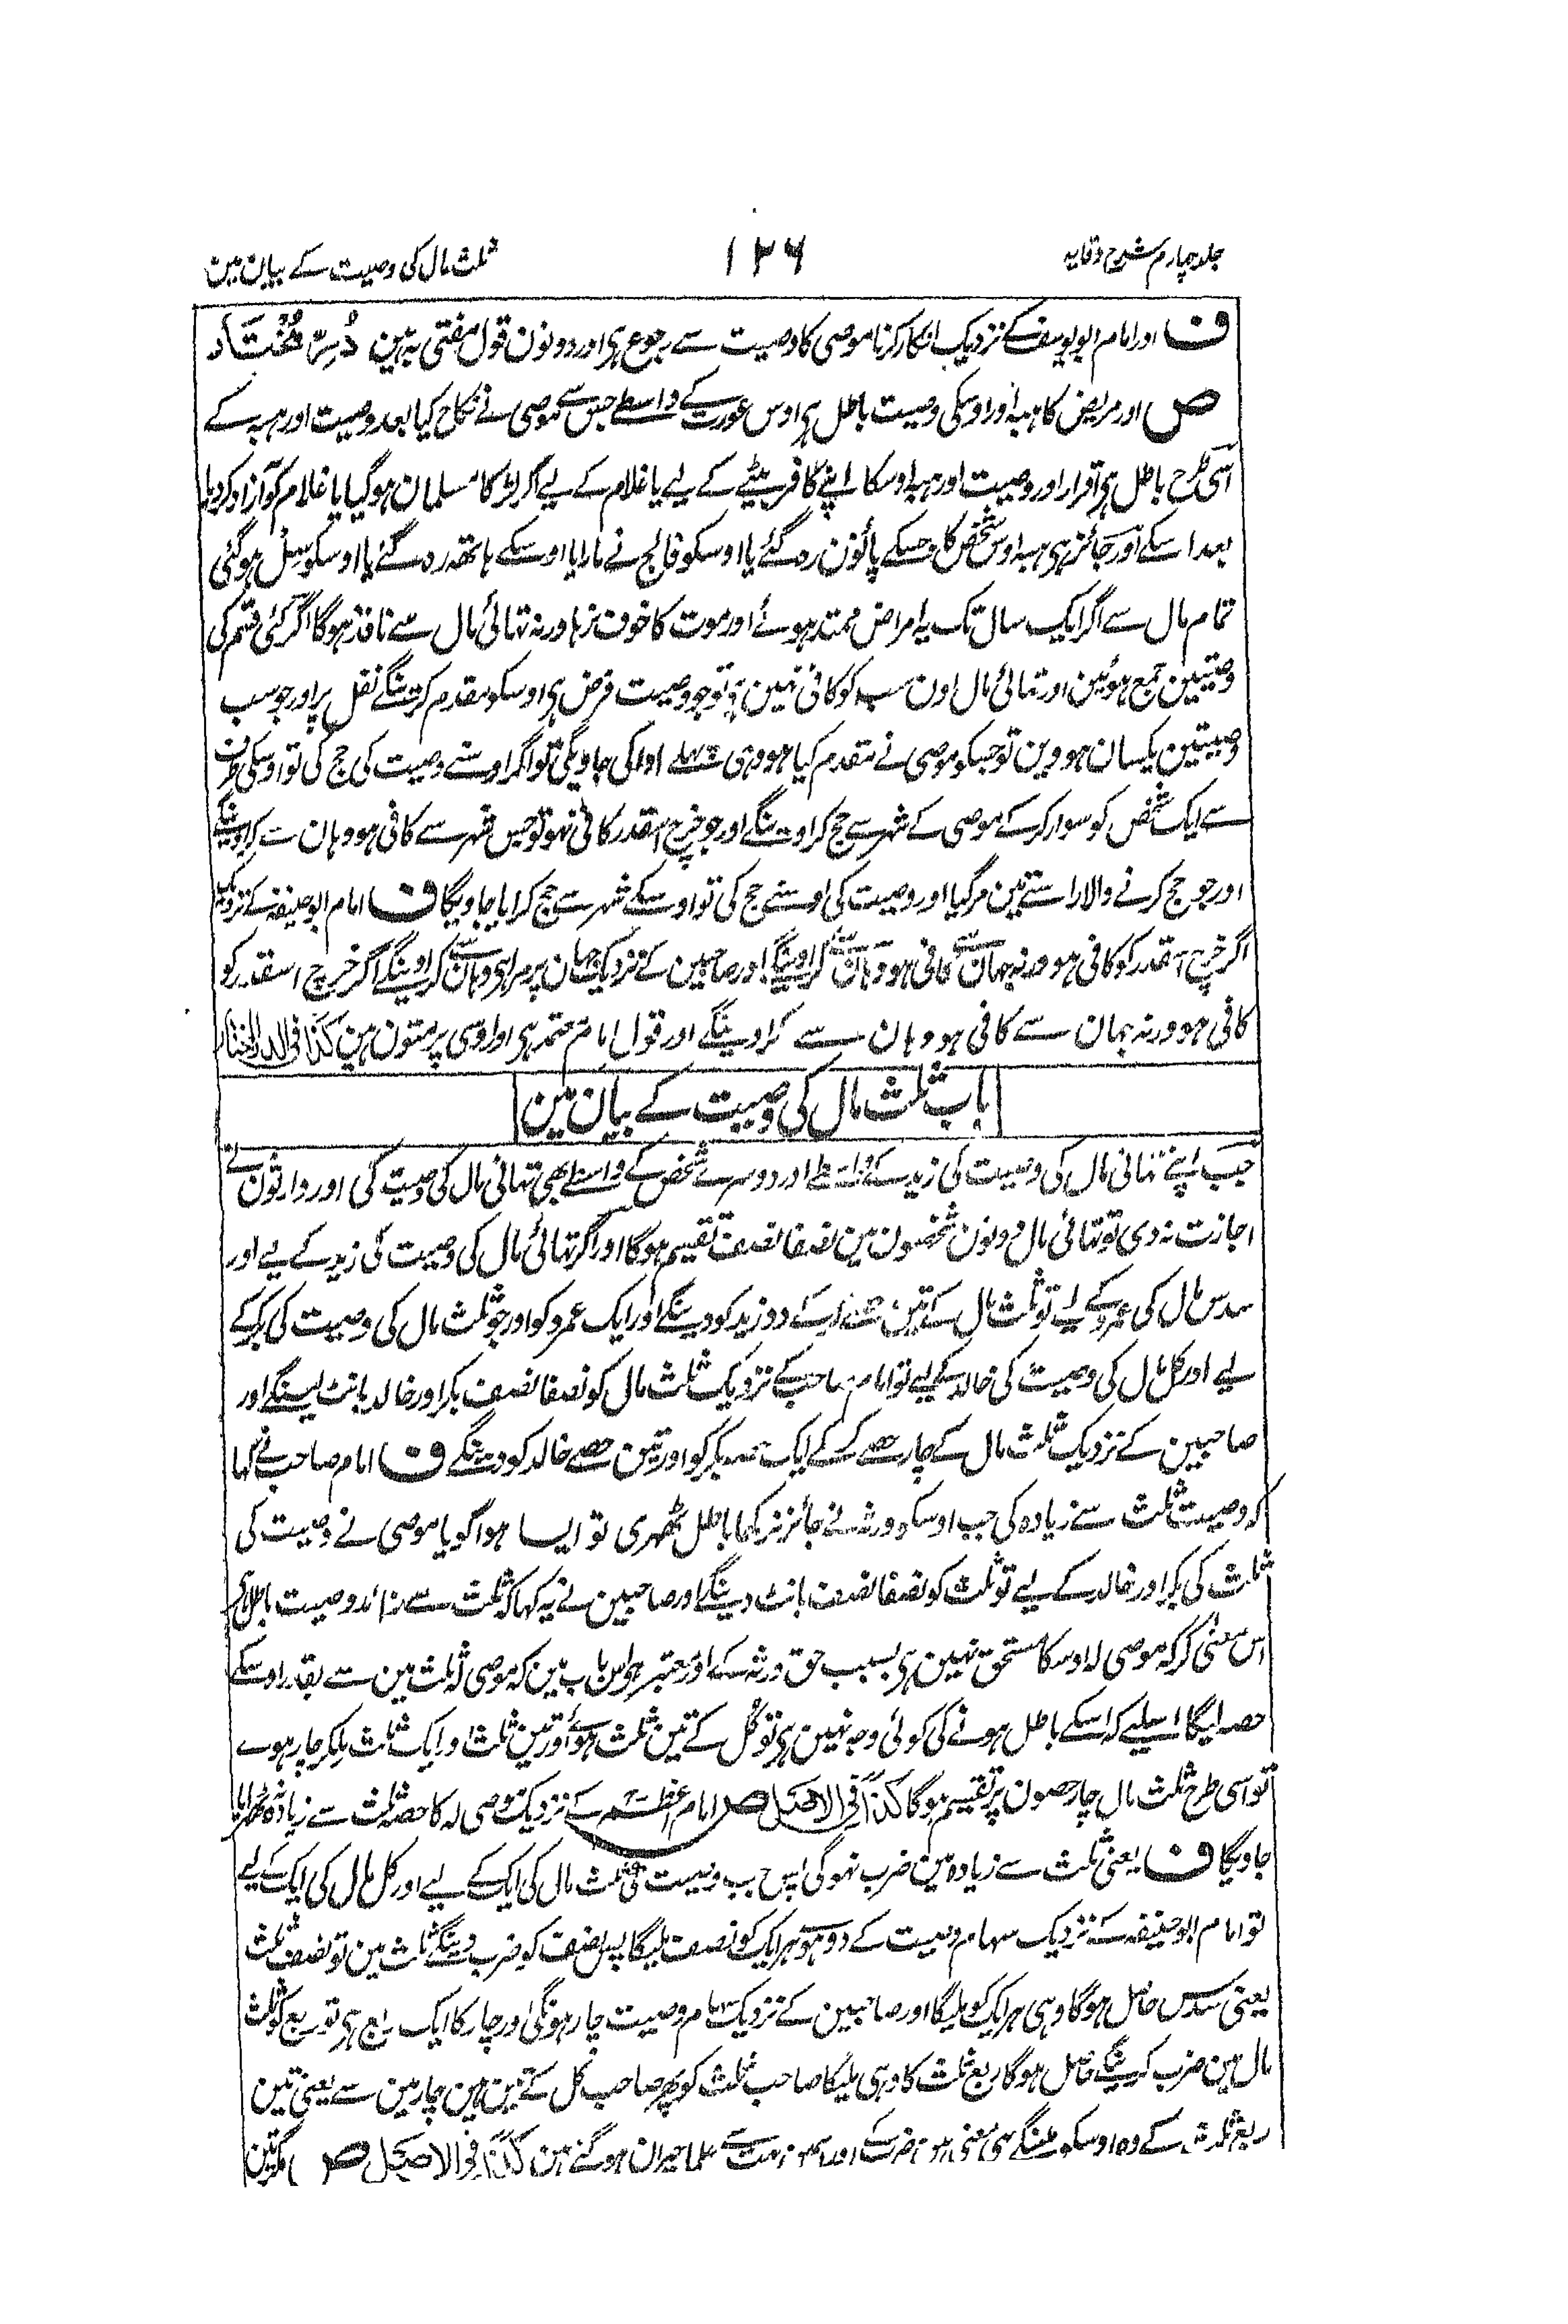 جلد چہارم شرح وقایہ
۱۲۶
ثلث مال کی وصیت کے بیان مین
ف اور امام ابو یوسف کے نزدیک انکار کرنا موصی کا وصیت سے رجوع ہی اور دونون قول مفتی بہ ہین دُرِّ مُخْتَار
ص اور مریض کا ہبہ اور اوسکی وصیت باطل ہی اوس عورت کے واسطے جس سے موصی نے نکاح کیا بعد وصیت اور ہبہ کے
اسی طرح باطل ہی اقرار اور وصیت اور ہبہ اوسکا اپنے کافر بیٹے کے لیے یا غلام کے لیے اگر لڑکا مسلمان ہوگیا یا غلام کو آزاد کردیا
بعد اسکے اور جائز ہی ہبہ اوس شخص کا جسکے پائون رہ گئے یا اوسکو فالج نے مارا یا اوسکے ہاتھ رہ گئے یا اوسکو سِل ہوگئی
تمام مال سے اگر ایک سال تک یہ امراض ممتد ہوئے اور موت کا خوف نرہا ورنہ تہائی مال سے نافذ ہوگا اگر کئی قسم کی
وصیتین جمع ہوئین اور تہائی مال اون سب کو کافی نہین ہی تو جو وصیت فرض ہی اوسکو مقدم کرینگے نفل پر اور جو سب
وصیتین یکسان ہووین تو جسکو موصی نے مقدم کیا ہو وہی پہلے ادا کی جاویگی تو اگر اوسنے وصیت کی حج کی تو اوسکی طرف
سے ایک شخص کو سوار کرکے موصی کے شہر سے حج کراوینگے اور جو خرچ اسقدر کافی نہو تو جس شہر سے کافی ہو وہان سے کراوینگے
اور جو حج کرنے والا راستے مین مرگیا اور وصیت کی اوسنے حج کی تو اوسکے شہر سے حج کرایا جاویگا ف امام ابو حنیفہ کے نزدیک
اگر خرچ اسقدر کو کافی ہو ورنہ جہان سے کافی ہو وہان سے کراوینگے اور صاحبین کے نزدیک جہان پر مرا ہی وہان سے کراوینگے اگر خرچ اسقدر کو
کافی ہو ورنہ جہان سے کافی ہو وہان سے کراوینگے اور قول امام معتمد ہی اور اوسی پر متون ہین کَذَا فی الدر المختار
باب ثلث مال کی وصیت کے بیان مین
جب اپنے تہائی مال کی وصیت کی زید کے واسطے اور دوسرے شخص کے واسطے بھی تہائی مال کی وصیت کی اور وارثون نے
اجازت نہ دی تو تہائی مال دونون شخصون مین نصفا نصف تقسیم ہوگا اور اگر تہائی مال کی وصیت کی زید کے لیے اور
سدس مال کی عمرو کے لیے تو ثلث مال کے تین حصے کرکے دو زید کو دینگے اور ایک عمرو کو اور جو ثلث مال کی وصیت کی بکر کے
لیے اور کل مال کی وصیت کی خالد کے لیے تو امام صاحب کے نزدیک ثلث مال کو نصفا نصف بکر اور خالد بانٹ لینگے اور
صاحبین کے نزدیک ثلث مال کے چار حصے کرکے ایک حصہ بکر کو اور تین حصے خالد کو دینگے ف امام صاحب نے کہا
کہ وصیت ثلث سے زیادہ کی جب اوسکو ورثہ نے جائز نرکھا باطل ٹھہری تو ایسا ہوا گویا موصی نے وصیت کی
ثلث کی بکر اور خالد کے لیے تو ثلث کو نصفا نصف بانٹ دینگے اور صاحبین نے یہ کہا کہ ثلث سے زائد وصیت باطل ہی
اس معنی کر کہ موصی لہ اوسکا مستحق نہین ہی بسبب حق ورثہ کے اور معتبر ہی اس باب مین کہ موصی لہ ثلث مین سے بقدر اوسکے
حصہ لیگا اسلیے کہ اسکے باطل ہونے کی کوئی وجہ نہین ہی تو کُل کے تین ثلث ہوئے اور تین ثلث اور ایک ثلث ملکر چار ہوے
تو اسی طرح ثلث مال چار حصون پر تقسیم ہوگا کَذَا فِی الاصل ص امام اعظم کے نزدیک موصی لہ کا حصہ ثلث سے زیادہ نہ ٹھہرایا
جاویگا ف یعنی ثلث سے زیادہ مین ضرب نہوگی پس جب وصیت کی ثلث مال کی ایک کے لیے اور کل مال کی ایک کے لیے
تو امام ابو حنیفہ کے نزدیک سہام وصیت کے دو ہوے ہر ایک کو نصف ملیگا پس نصف کو ضرب دینگے ثلث مین تو نصف ثلث
یعنی سدس حاصل ہوگا وہی ہر ایک کو ملیگا اور صاحبین کے نزدیک سہام وصیت چار ہونگی اور چار کا ایک ربع ہی تو ربع کو ثلث
مال مین ضرب کرینگے حاصل ہوگا ربع ثلث کا وہی ملیگا صاحب ثلث کو پھر صاحب کل کے تین ہین چار مین سے یعنی تین
ربع ثلث کے وہ اوسکو ملینگے یہی معنی ہین ضرب کے اور بہت سے علما حیران ہوگئے ہین کَذَا فِی الاصل ص مگر تین